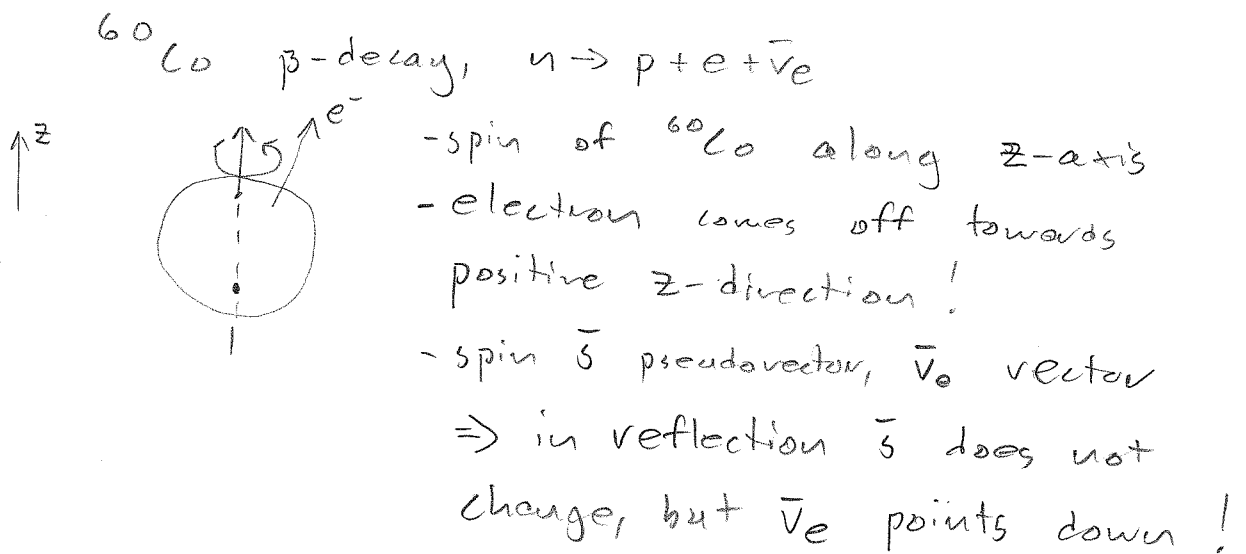 ⁶⁰Co β-decay, n → p + e + ν̄e
z
e⁻
- spin of ⁶⁰Co along z-axis
- electron comes off towards
positive z-direction!
- spin s̄ pseudovector, v̄e vector
⇒ in reflection s̄ does not
change, but v̄e points down!